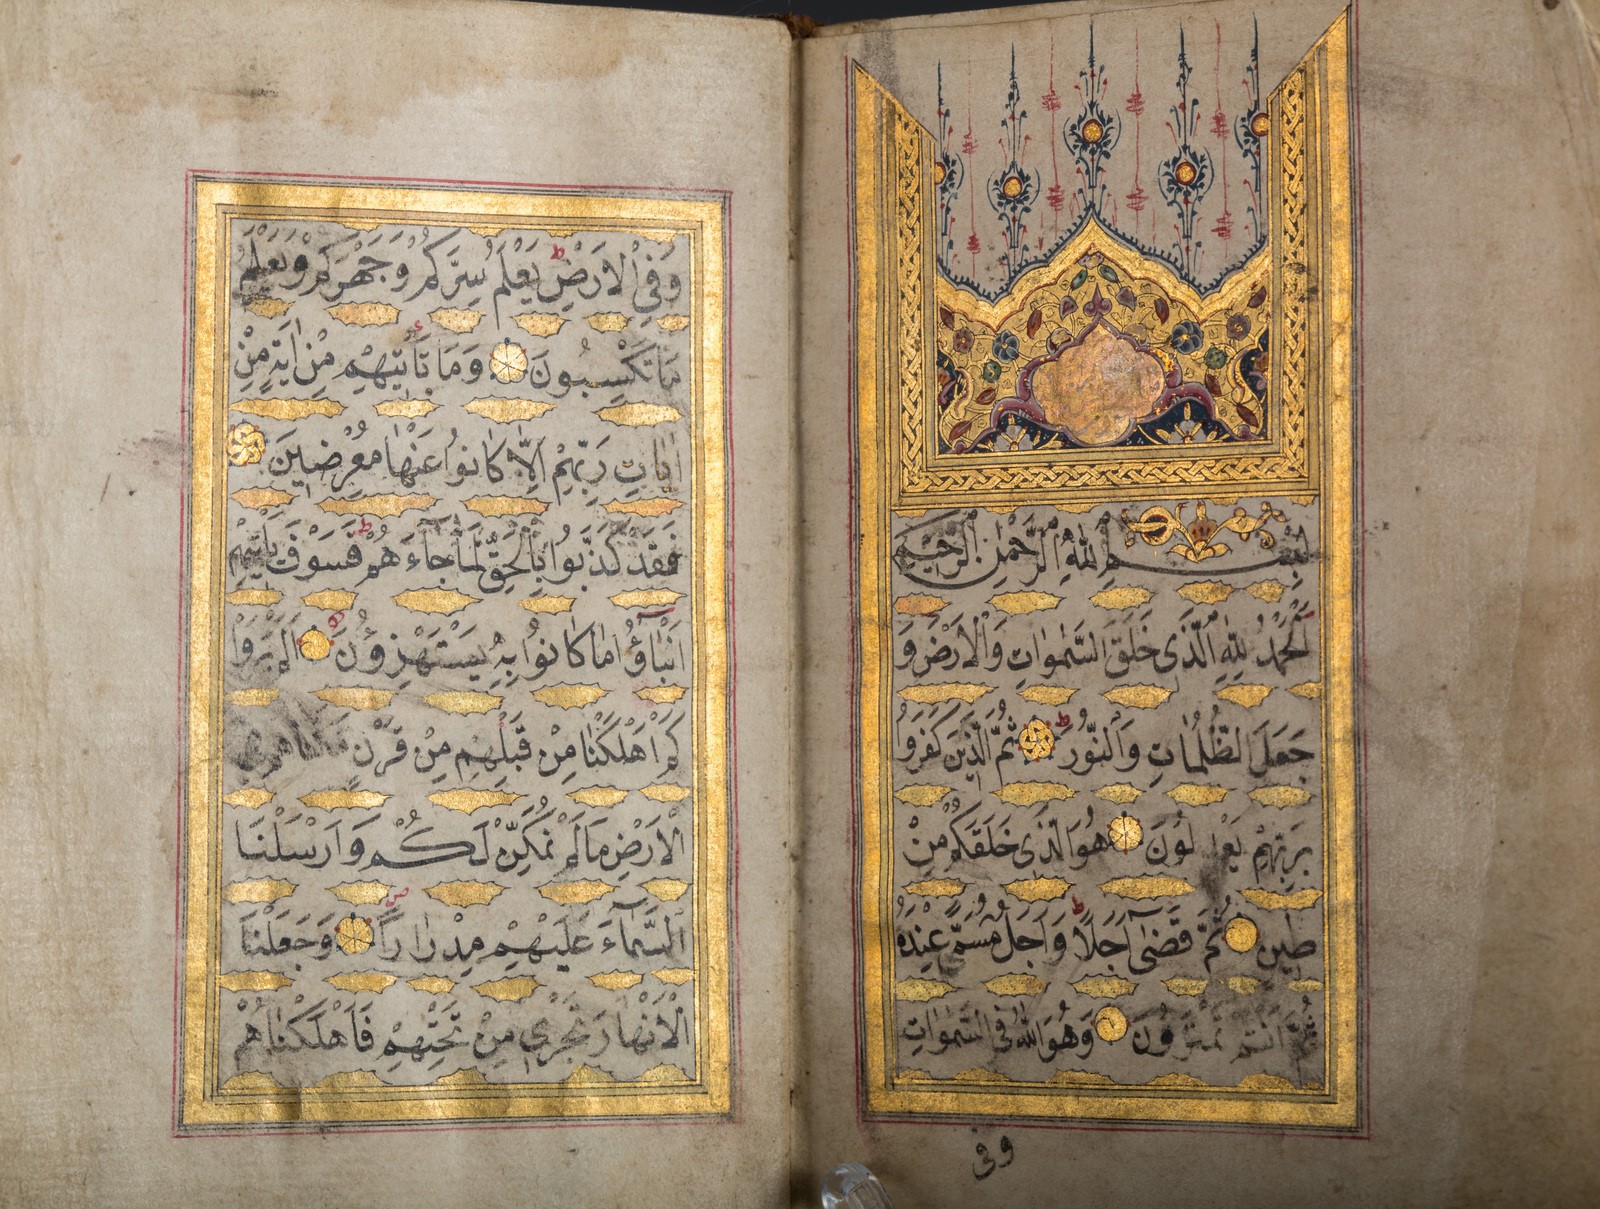 بِسْمِ اللهِ الرَّحْمٰنِ الرَّحِيمِ
اَلْحَمْدُ لِلّٰهِ الَّذِى خَلَقَ السَّمٰوَاتِ وَالْاَرْضَ وَ
جَعَلَ الظُّلُمَاتِ وَالنُّورَ ط ثُمَّ الَّذِينَ كَفَرُوا
بِرَبِّهِمْ يَعْدِلُونَ هُوَ الَّذِى خَلَقَكُمْ مِنْ
طِينٍ ثُمَّ قَضٰى اَجَلًا ط وَاَجَلٌ مُسَمًّى عِنْدَهُ
ثُمَّ اَنْتُمْ تَمْتَرُونَ وَهُوَ اللهُ فِى السَّمٰوَاتِ
وفى
وَفِى الْاَرْضِ ط يَعْلَمُ سِرَّكُمْ وَجَهْرَكُمْ وَيَعْلَمُ
مَا تَكْسِبُونَ وَمَا تَأْتِيهِمْ مِنْ اٰيَةٍ مِنْ
اٰيَاتِ رَبِّهِمْ اِلَّا كَانُوا عَنْهَا مُعْرِضِينَ
فَقَدْ كَذَّبُوا بِالْحَقِّ لَمَّا جَاءَهُمْ ط فَسَوْفَ يَأْتِيهِمْ
اَنْبَاؤُا مَا كَانُوا بِهِ يَسْتَهْزِؤُنَ اَلَمْ يَرَوْا
كَمْ اَهْلَكْنَا مِنْ قَبْلِهِمْ مِنْ قَرْنٍ
الْاَرْضِ مَا لَمْ نُمَكِّنْ لَكُمْ وَاَرْسَلْنَا
السَّمَاءَ عَلَيْهِمْ مِدْرَارًا ص وَجَعَلْنَا
الْاَنْهَارَ تَجْرِى مِنْ تَحْتِهِمْ فَاَهْلَكْنَاهُمْ